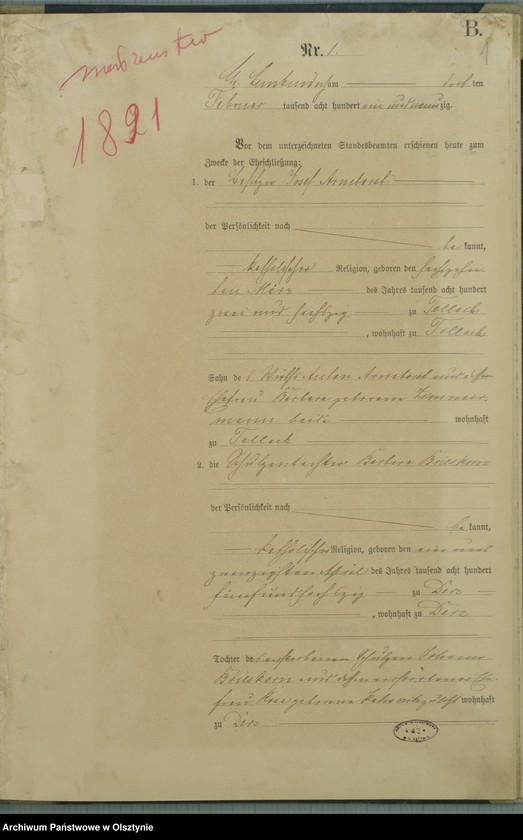 B.
1
Nr. 1.
1891
am ten
Februar tausend acht hundert ein und neunzig.
Vor dem unterzeichneten Standesbeamten erschienen heute zum
Zwecke der Eheschließung:
1. der Besitzer Josef
der Persönlichkeit nach
be kannt,
katholischer Religion, geboren den sechszehn
ten März des Jahres tausend acht hundert
zwei und sechszig zu Tollack
, wohnhaft zu Tollack
Sohn des Wirths Anton und dessen
Ehefrau Barbara geborene Zimmer
mann beide wohnhaft
zu Tollack
2. die Schulzentochter Barbara
der Persönlichkeit nach
be kannt,
katholischer Religion, geboren den ein und
zwanzigsten April des Jahres tausend acht hundert
fünfundsechszig zu Derz
, wohnhaft zu Derz
Tochter des verstorbenen Schulzen Johann
und dessen verstorbenen Ehe
frau geborene wohnhaft
zu Derz
Archiwum Państwowe w Olsztynie